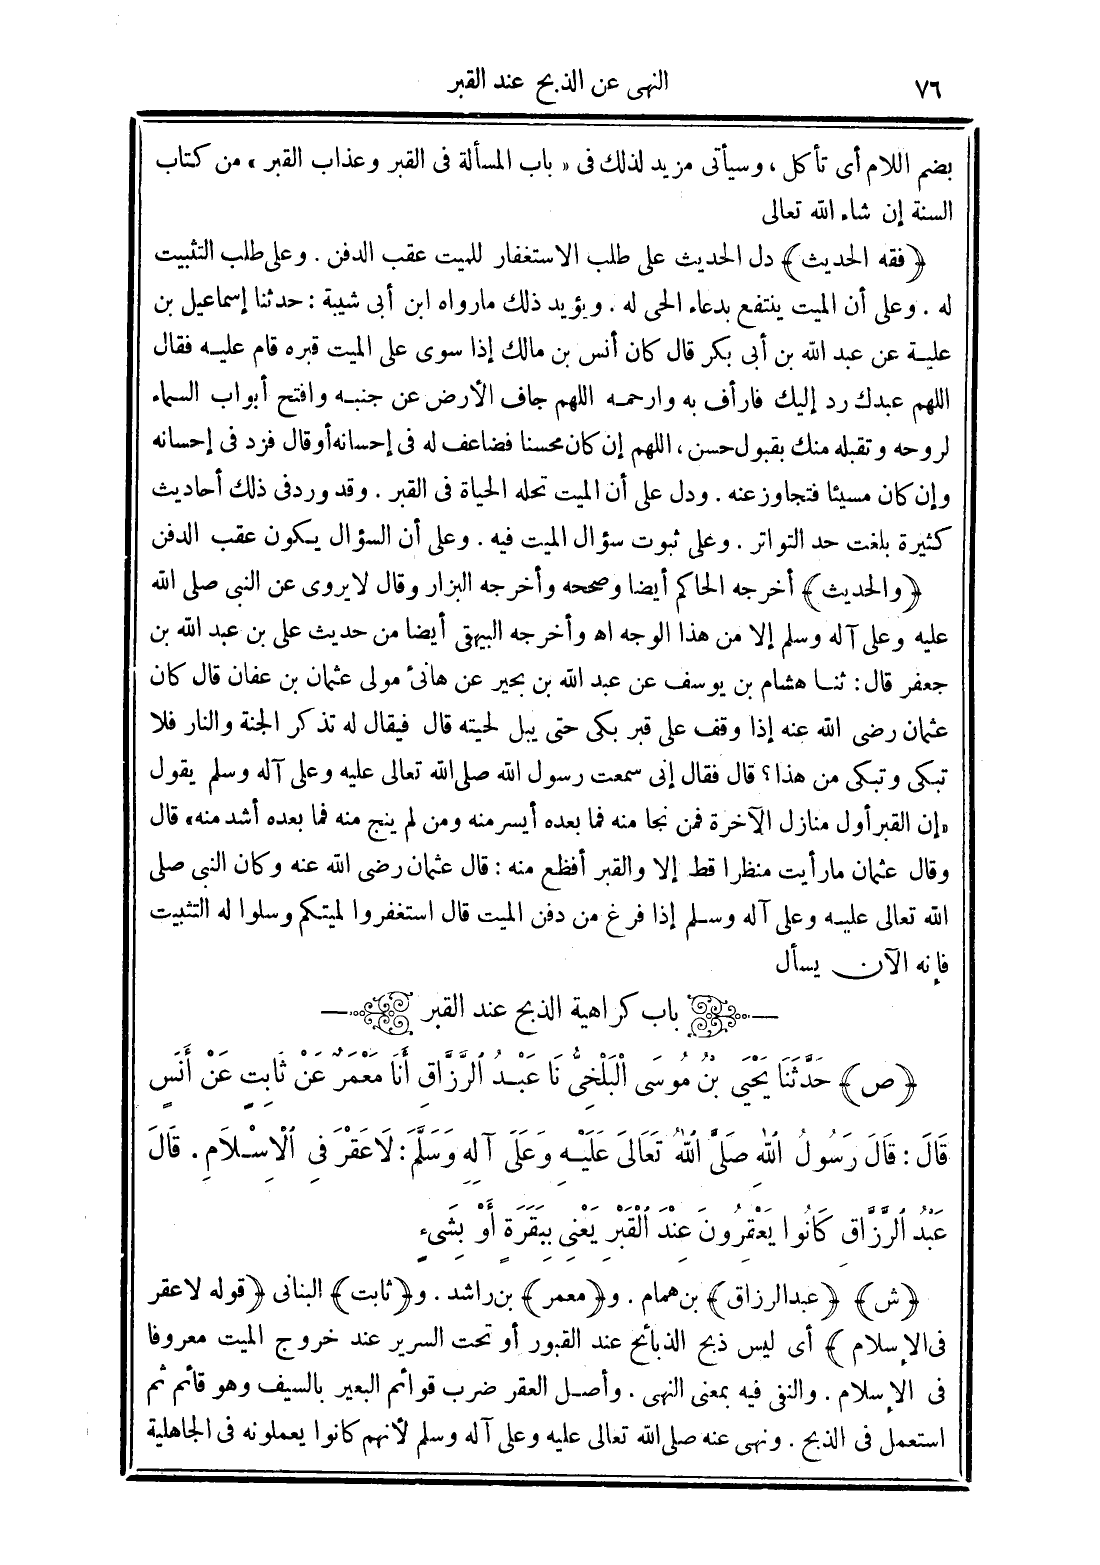 ٧٦
النهى عن الذبح عند القبر
بضم اللام أى تأكل ، وسيأتى مزيد لذلك فى « باب المسألة فى القبر وعذاب القبر » من كتاب
السنة إن شاء الله تعالى
﴿فقه الحديث﴾ دل الحديث على طلب الاستغفار للميت عقب الدفن . وعلى طلب التثبيت
له . وعلى أن الميت ينتفع بدعاء الحى له . ويؤيد ذلك مارواه ابن أبى شيبة : حدثنا إسماعيل بن
علية عن عبد الله بن أبى بكر قال كان أنس بن مالك إذا سوى على الميت قبره قام عليه فقال
اللهم عبدك رد إليك فارأف به وارحمه اللهم جاف الأرض عن جنبه وافتح أبواب السماء
لروحه وتقبله منك بقبول حسن ، اللهم إن كان محسنا فضاعف له فى إحسانه أوقال فزد فى إحسانه
وإن كان مسيئا فتجاوز عنه . ودل على أن الميت تحله الحياة فى القبر . وقد ورد فى ذلك أحاديث
كثيرة بلغت حد التواتر . وعلى ثبوت سؤال الميت فيه . وعلى أن السؤال يكون عقب الدفن
﴿والحديث﴾ أخرجه الحاكم أيضا وصححه وأخرجه البزار وقال لايروى عن النبى صلى الله
عليه وعلى آله وسلم إلا من هذا الوجه اه وأخرجه البيهقى أيضا من حديث على بن عبد الله بن
جعفر قال : ثنا هشام بن يوسف عن عبد الله بن بحير عن هانئ مولى عثمان بن عفان قال كان
عثمان رضى الله عنه إذا وقف على قبر بكى حتى يبل لحيته قال فيقال له تذكر الجنة والنار فلا
تبكى وتبكى من هذا ؟ قال فقال إنى سمعت رسول الله صلى الله تعالى عليه وعلى آله وسلم يقول
«إن القبر أول منازل الآخرة فمن نجا منه فما بعده أيسر منه ومن لم ينج منه فما بعده أشد منه» قال
وقال عثمان مارأيت منظرا قط إلا والقبر أفظع منه : قال عثمان رضى الله عنه وكان النبى صلى
الله تعالى عليه وعلى آله وسلم إذا فرغ من دفن الميت قال استغفروا لميتكم وسلوا له التثبيت
فإنه الآن يسأل
باب كراهية الذبح عند القبر
﴿ص﴾ حَدَّثَنَا يَحْيَى بْنُ مُوسَى الْبَلْخِىُّ نَا عَبْدُ الرَّزَّاقِ أَنَا مَعْمَرٌ عَنْ ثَابِتٍ عَنْ أَنَسٍ
قَالَ : قَالَ رَسُولُ اللهِ صَلَّى اللهُ تَعَالَى عَلَيْهِ وَعَلَى آلِهِ وَسَلَّمَ : لَا عَقْرَ فِى الْإِسْلَامِ . قَالَ
عَبْدُ الرَّزَّاقِ كَانُوا يَعْقِرُونَ عِنْدَ الْقَبْرِ يَعْنِى بِبَقَرَةٍ أَوْ بِشَىءٍ
﴿ش﴾ ﴿عبدالرزاق﴾ بن همام . و﴿معمر﴾ بن راشد . و﴿ثابت﴾ البنانى ﴿قوله لاعقر
فى الإسلام﴾ أى ليس ذبح الذبائح عند القبور أو تحت السرير عند خروج الميت معروفا
فى الإسلام . والنفى فيه بمعنى النهى . وأصل العقر ضرب قوائم البعير بالسيف وهو قائم ثم
استعمل فى الذبح . ونهى عنه صلى الله تعالى عليه وعلى آله وسلم لأنهم كانوا يعملونه فى الجاهلية